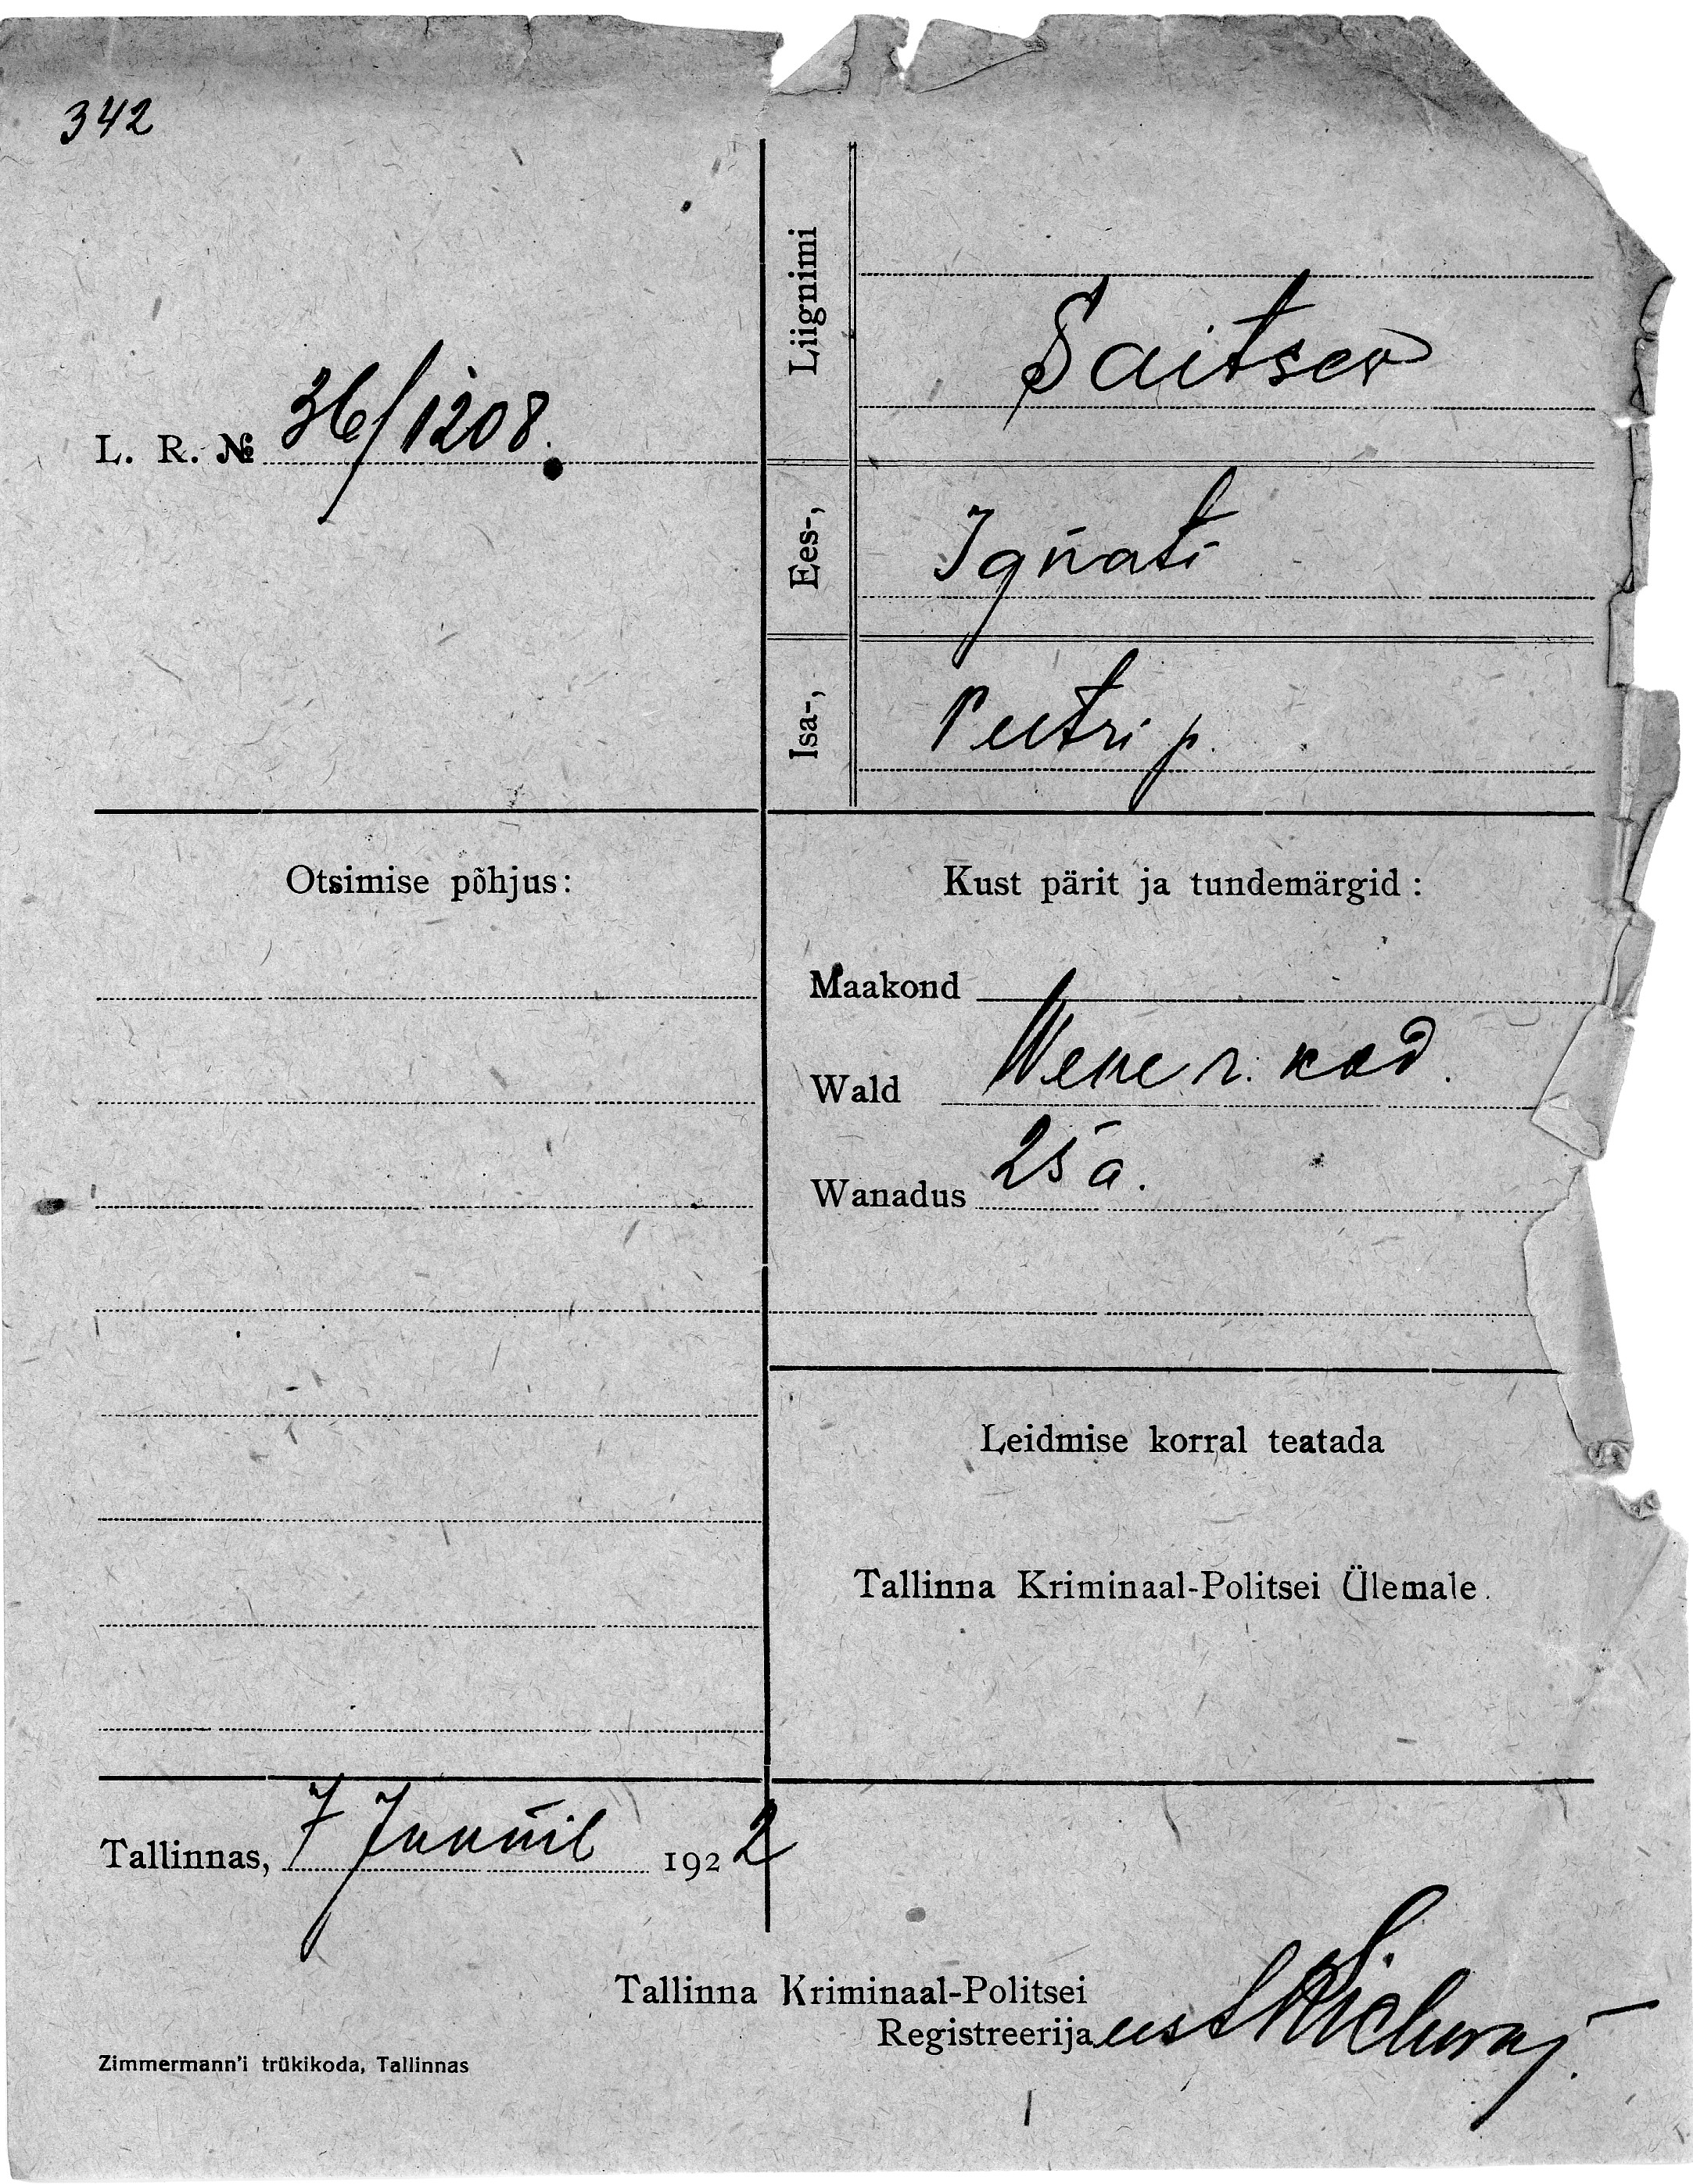 342
L. R. № 36/1208.
Liignimi
Saitsev
Ees-,
Ignati
Isa-,
Peetri p.
Otsimise põhjus:
Kust pärit ja tundemärgid:
Maakond
Wald Wene r. kod.
Wanadus 25 a.
Leidmise korral teatada
Tallinna Kriminaal-Politsei Ülemale.
Tallinnas, 7 Juunil 1922
Tallinna Kriminaal-Politsei
Registreerija eest
Zimmermann'i trükikoda, Tallinnas